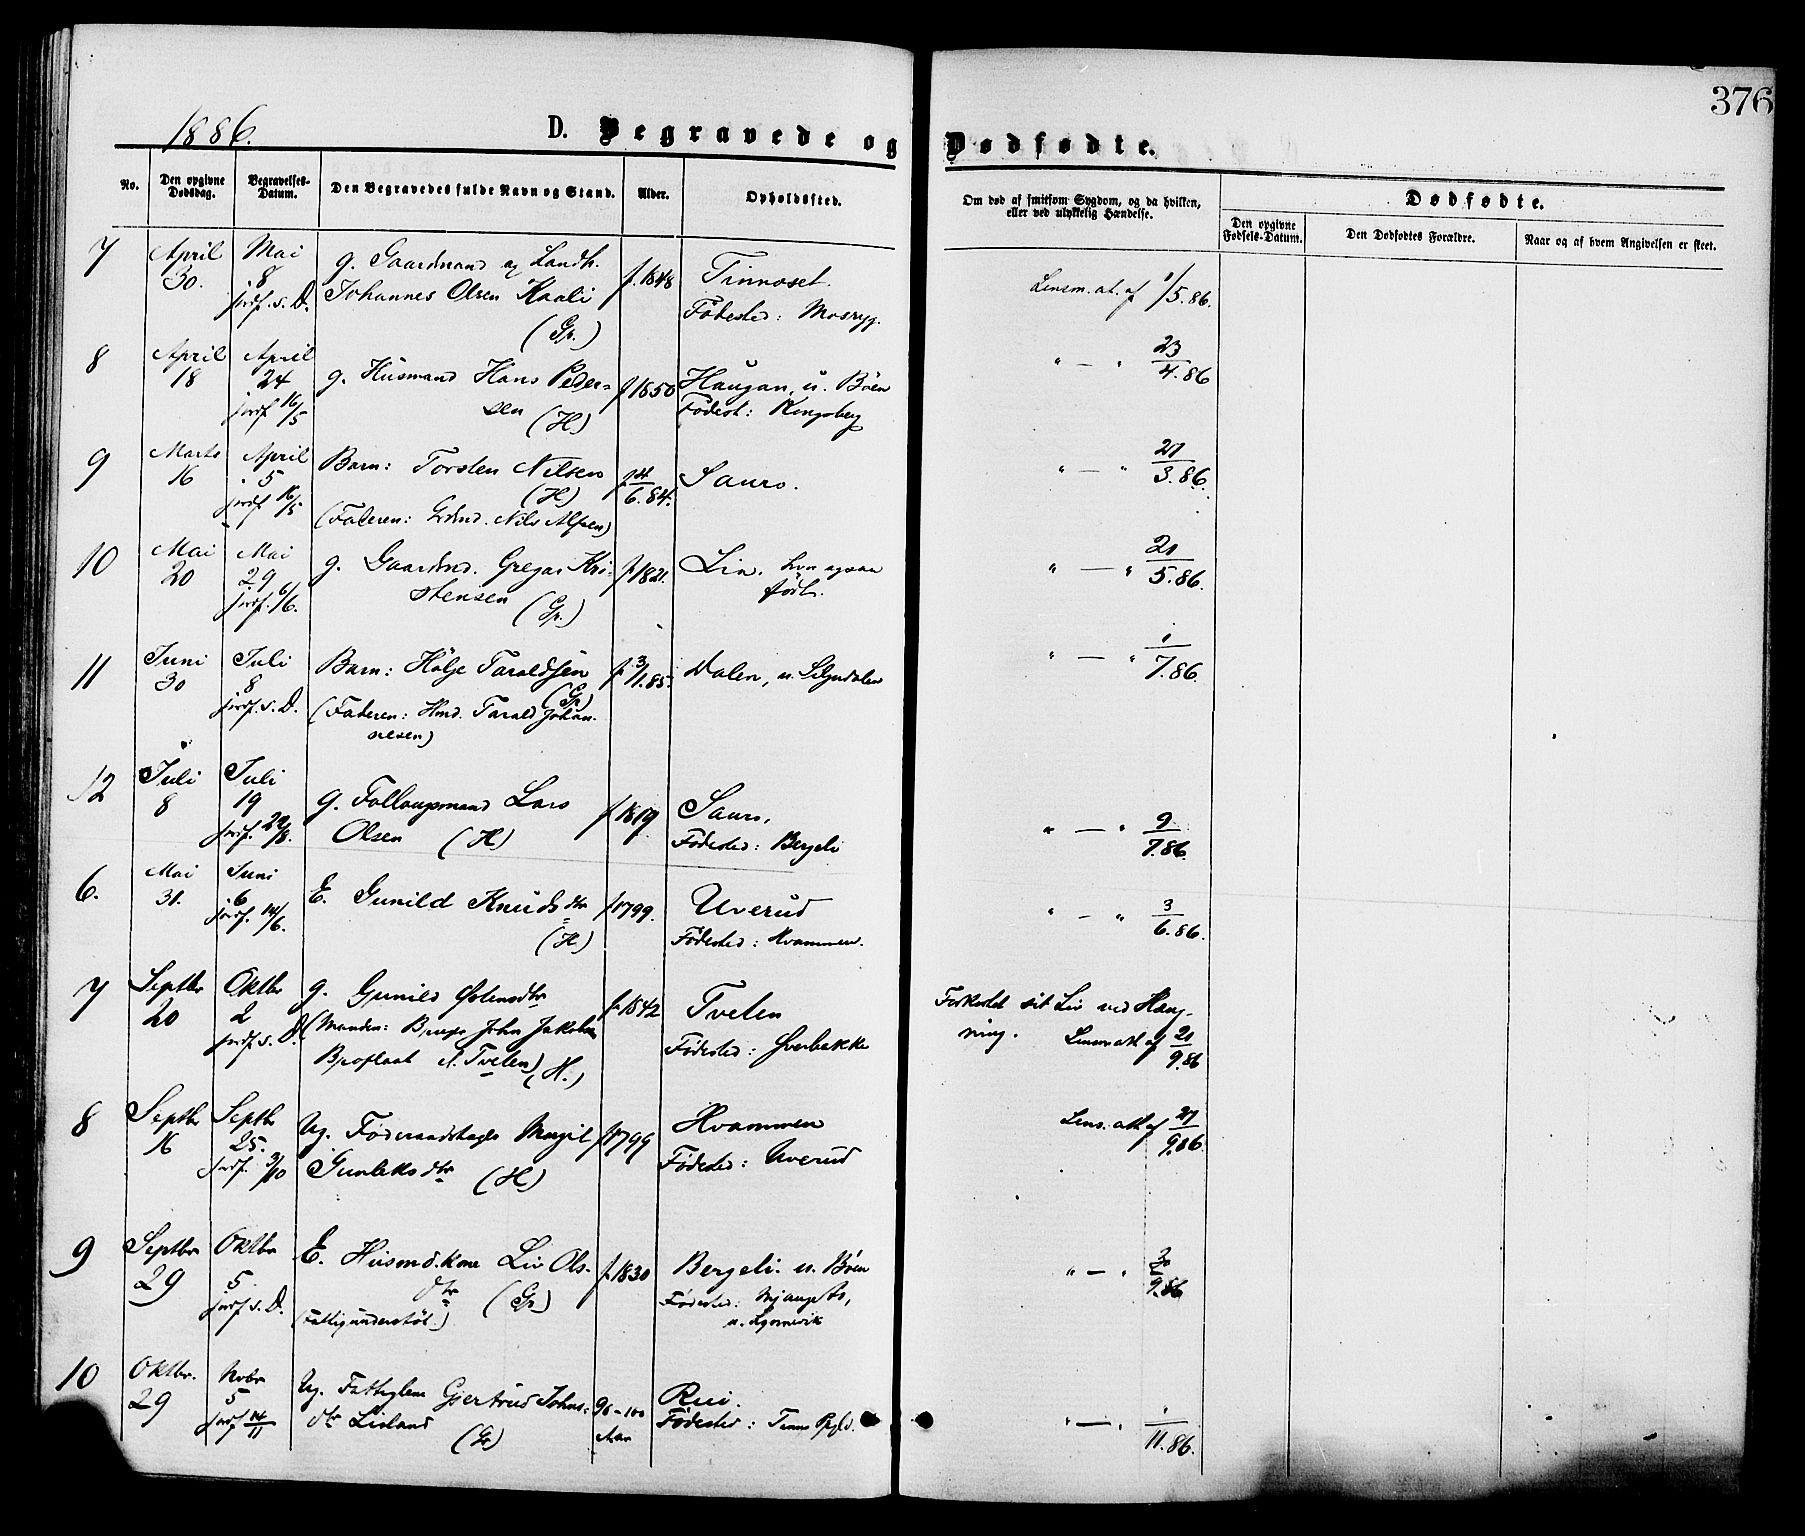 376
1886.
D. Begravede og Dødfødte.
No.
Den opgivne Dødsdag.
Begravelses-Datum.
Den Begravedes fulde Navn og Stand.
Alder.
Opholdssted.
Om død af smitsom Sygdom, og da hvilken, eller ved ulykkelig Hændelse.
Dødfødte.
Den opgivne Fødsels-Datum.
Den Dødfødtes Forældre.
Naar og af hvem Angivelsen er skeet.
7 April Mai g. Gaardmand og Landh.
30. 8 Johannes Olsen Kaali f. 1848 Tinnoset. Lensm. at. af 1/5.86.
jordf. s. D. (Gr.) Fødested: Mosryg.
8 April April g. Husmand Hans Peder- f. 1850 Haugan, u. Bøen " — " 23/4.86
18 24 sen (H) Fødest: Kongsberg
jordf. 16/5
9 Marts April Barn: Torsten Nilsen f. 14/6.84. Sauro. " — " 21/3.86.
16 5 (H)
jordf. 16/5 (Faderen: Grdmd. Nils Alfsen)
10 Mai Mai g. Gaardmd. Gregar Kri- f. 1821. Lia. " — " 21/5.86.
20 29 stensen (Gr.) født.
jordf. 6/6.
11 Juni Juli Barn: Hølje Taraldsen f. 3/1.85. Dalen, u. " — " 1/7.86.
30 8 (Gr)
jordf. s. D. (Faderen: Hmd. Tarald Johan-
nesen)
12 Juli Juli g. Lars f. 1819 Sauro, " — " 9/7.86.
8 19 Olsen (H) Fødested: Bergeli
jordf. 22/8.
6. Mai Juni E. Gunild Knudsdtr f. 1799. Uverud " — " 3/6.86.
31. 6 (H.) Fødested: Hvammen.
jordf. 14/6.
7 Septbr Oktbr g. Gunild Østensdtr f. 1842 Tveten Forkortet sit Liv ved Hæng-
20 2 (Manden: John Jakobsen Fødested: Øverbekke ning. Lensm att. af 21/9.86
jordf. s. D. Tveten) (H.)
8 Septbr Septbr Ug. Margit f. 1799 Hvammen Lens. att. af 21/9.86.
16 25. Gunleksdtr (H.) Fødested: Uverud
jordf. 3/10
9 Septbr Oktbr E. Husmd.kone Liv Ols- f. 1830 Bergeli u. Bøen " — " 30/9.86
29 5. dtr (Gr.) Fødested:
jordf. s. D. (Fattigunderstøt.)
10 Oktbr. Novbr Ug. Fattiglem Gjertrud Johns- 96-100 Rui. " — " 1/11.86.
29 5 dtr Lisland Aar Fødested:
jordf 14/11 (Gr)